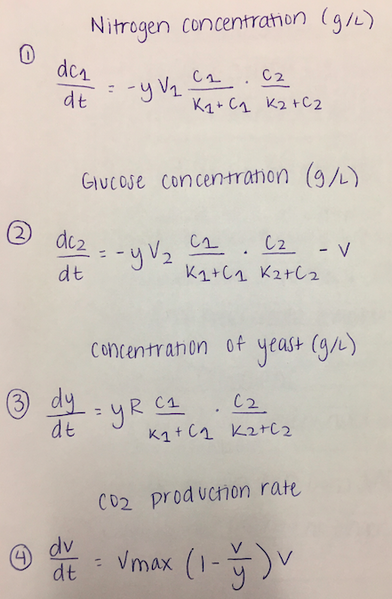 Nitrogen concentration (g/L)
① dc1/dt = -y V1 c1/(K1+c1) · c2/(K2+c2)
Glucose concentration (g/L)
② dc2/dt = -y V2 c1/(K1+c1) · c2/(K2+c2) - v
concentration of yeast (g/L)
③ dy/dt = y R c1/(K1+c1) · c2/(K2+c2)
CO2 production rate
④ dv/dt = Vmax (1 - v/y) v